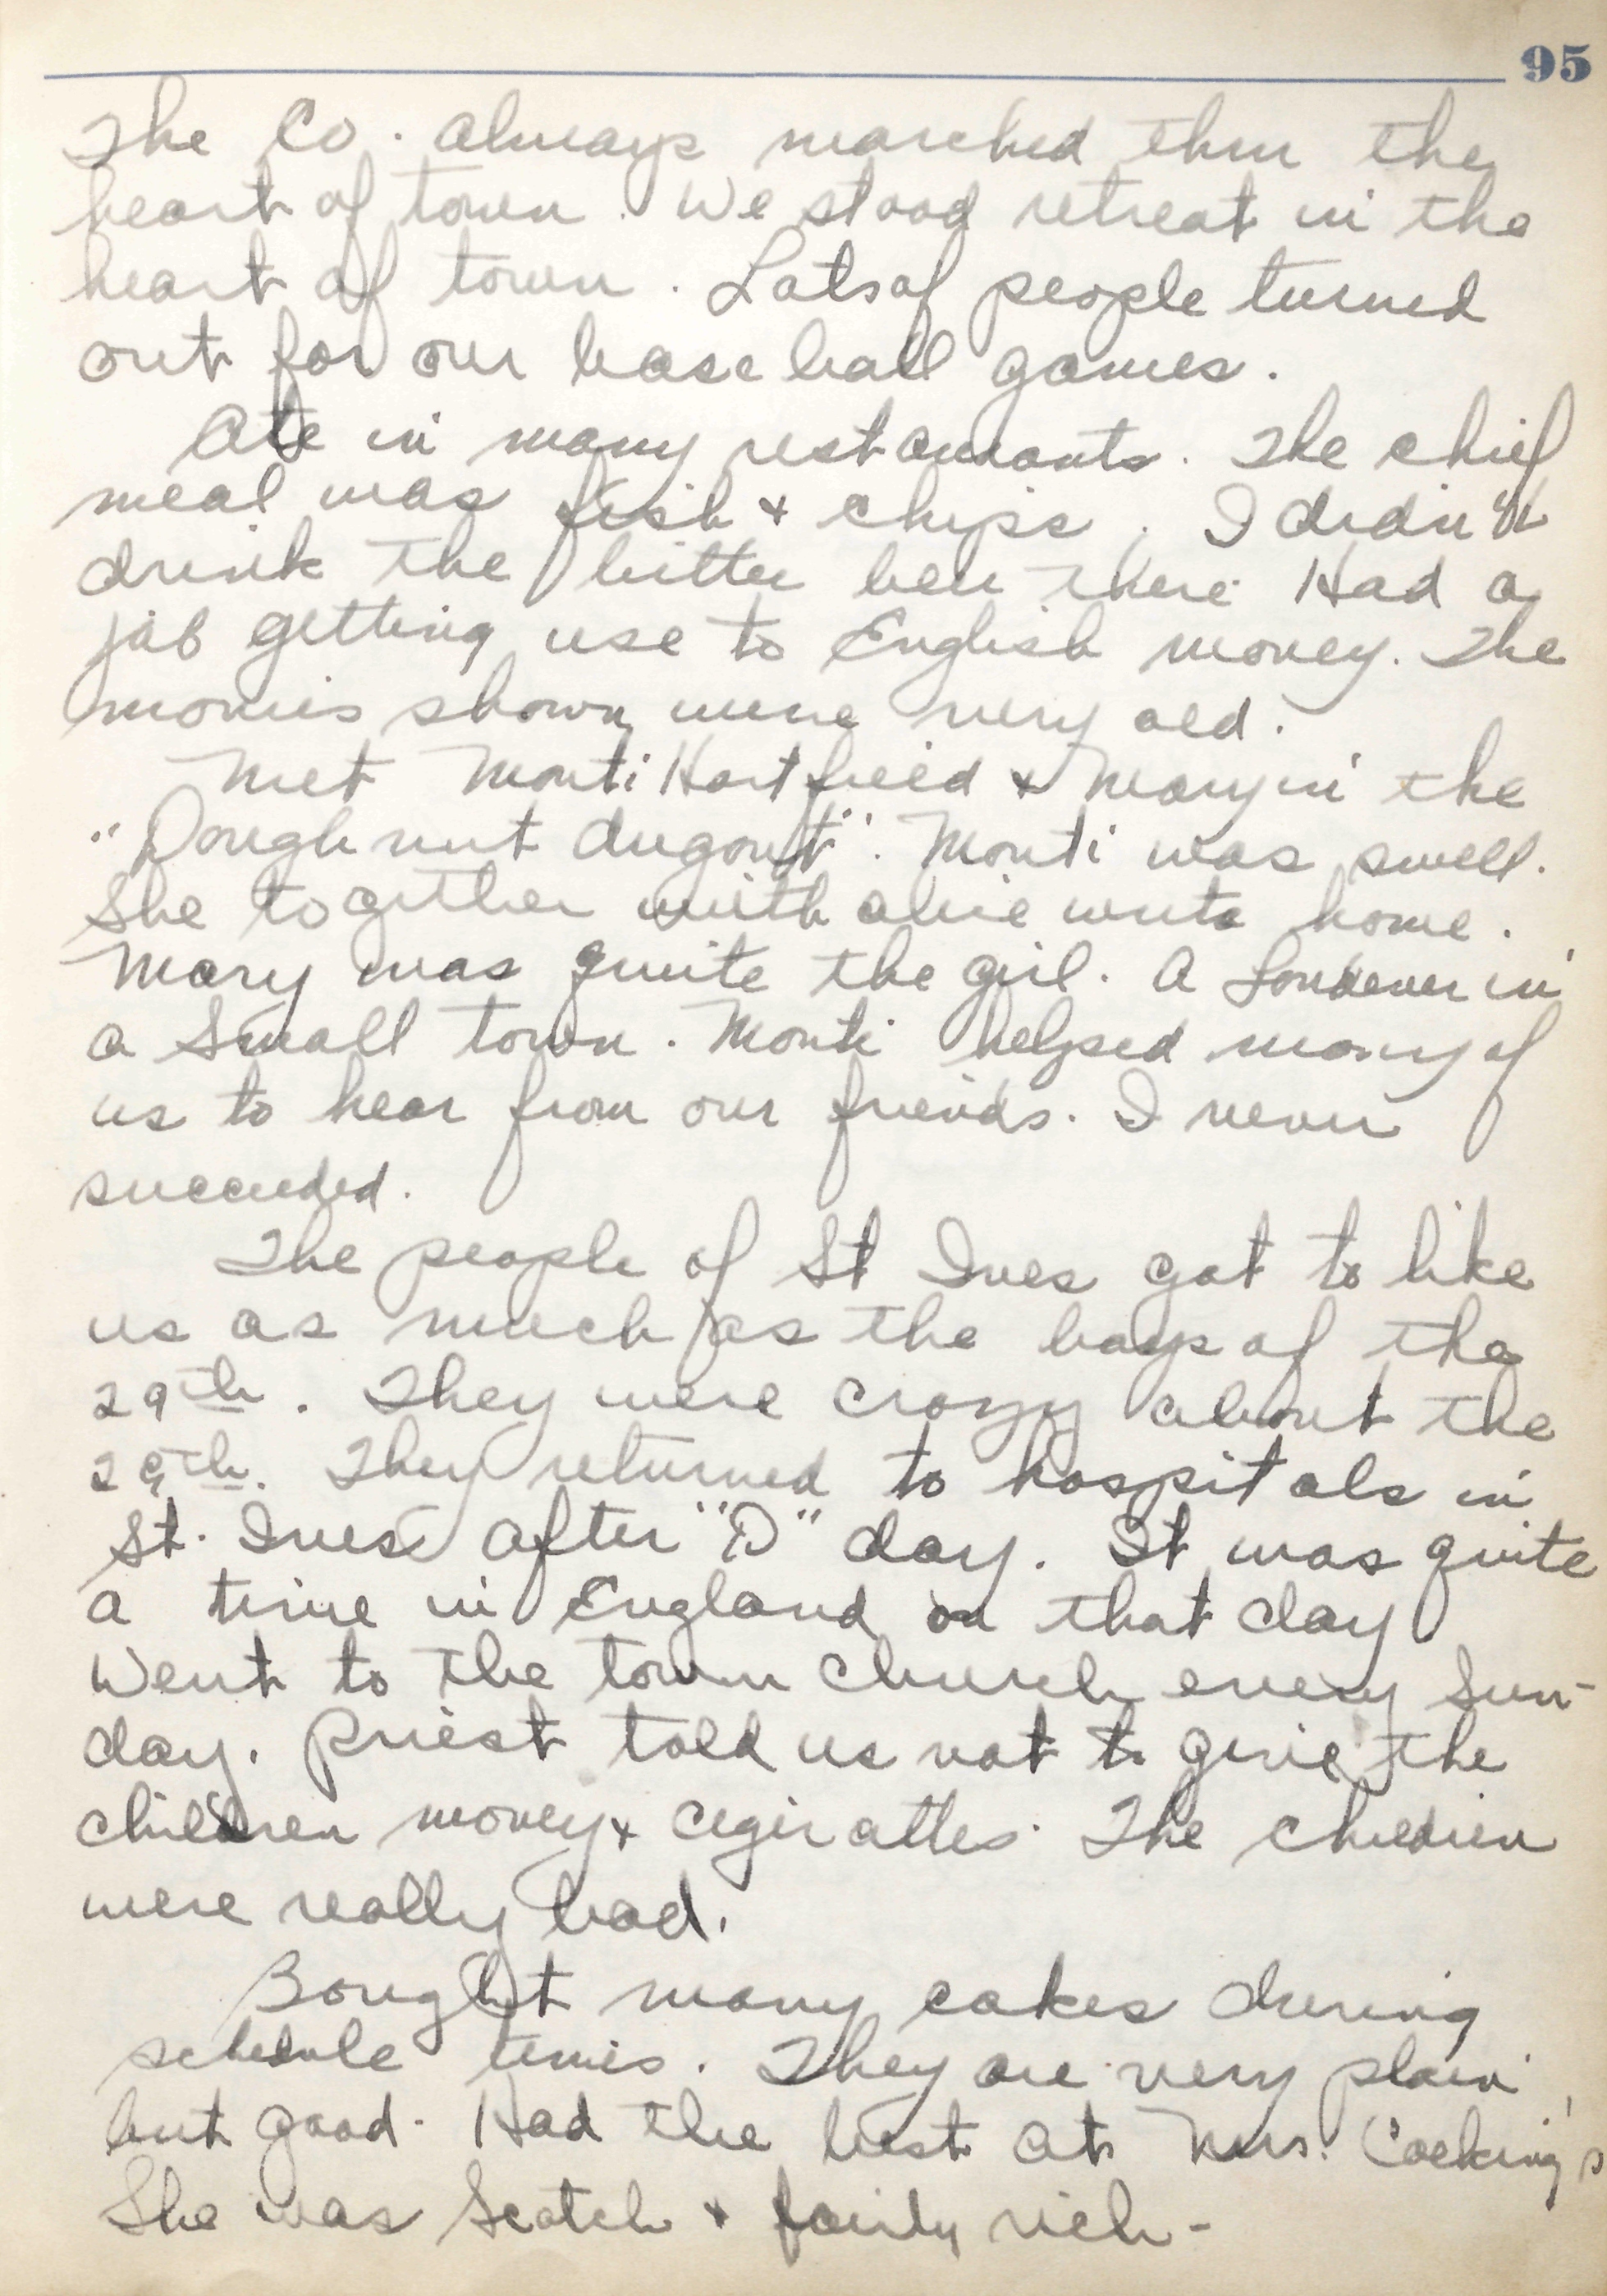 95
The Co. always marched thru the
heart of town. We stood retreat in the
heart of town. Lots of people turned
out for our base ball games.
Ate in many restaurants. The chief
meal was fish + chips. I didn't
drink the bitter beer there. Had a
job getting use to English money. The
movies shown were very old.
Met Monti Hartfield + Mary in the
"Doughnut dugout". Monti was swell.
She together with wrote home.
Mary was quite the girl. A Londener in
a small town. Monti helped many of
us to hear from our friends. I never
succeeded.
The people of St Ives got to like
us as much as the boys of the
29th. They were crazy about the
29th. They returned to hospitals in
St. Ives after "D" day. It was quite
a time in England on that day
Went to the town church every Sun-
day. Priest told us not to give the
children money + cigirattes. The children
were really bad.
Bought many cakes during
schedule times. They are very plain
but good. Had the best at Mrs. Cocking's
She was Scotch + fairly rich-